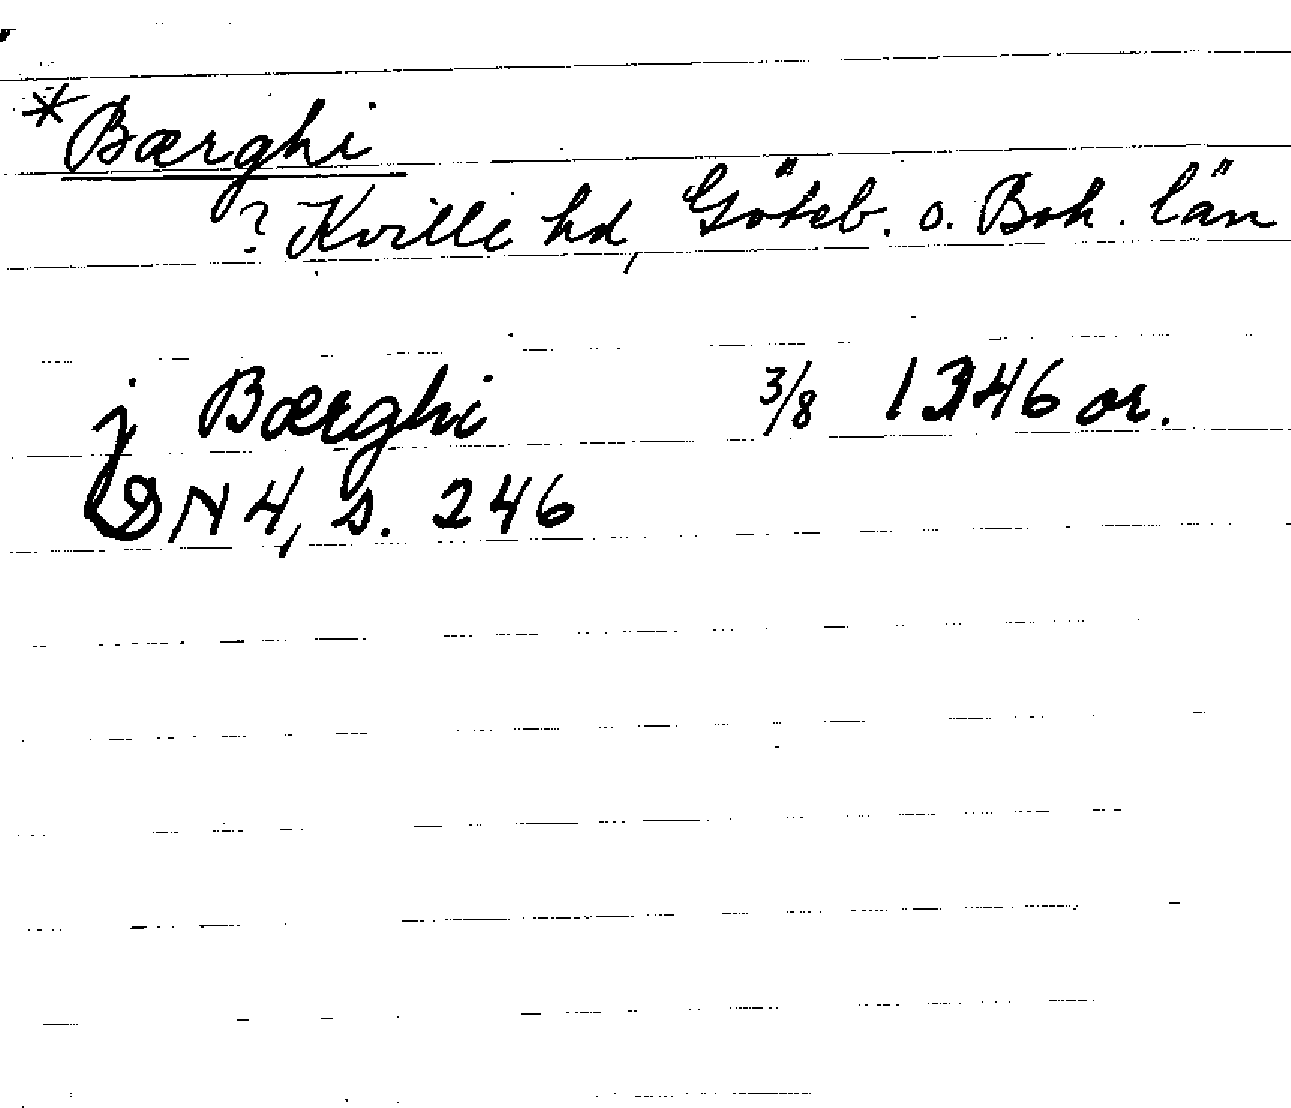 *Bærghi
? Kville hd, Göteb. o. Boh. län
j Bærghi 3/8 1346 or.
DN 4, s. 246